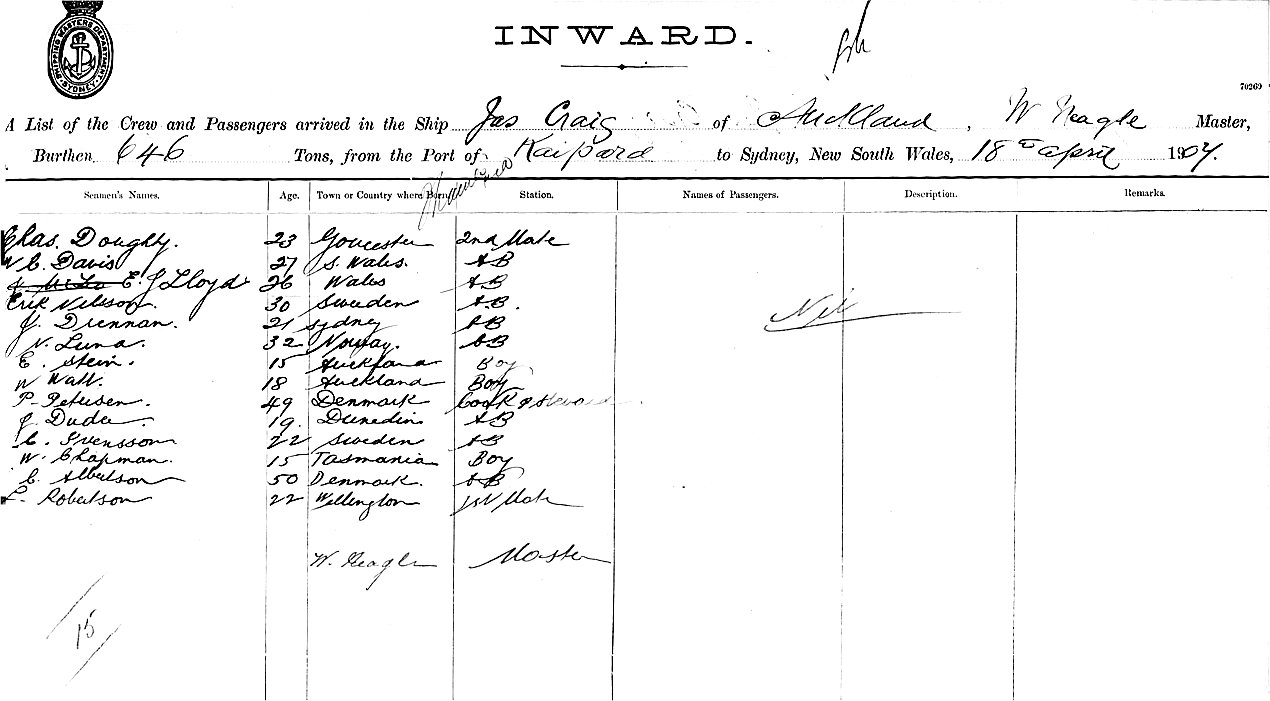 SHIPPING MASTERS DEPARTMENT SYDNEY
INWARD.
70269
A List of the Crew and Passengers arrived in the Ship Jas Craig of Auckland, W Neagle Master,
Burthen 646 Tons, from the Port of Kaipara to Sydney, New South Wales, 18th April 1904.
Seamen's Names. Age. Town or Country where Born Station. Names of Passengers. Description. Remarks.
Chas. Doughty. 23 Goucester 2nd Mate
W C. Davis 27 S. Wales. AB
E. J Lloyd 26 Wales AB
Erik Nilsson. 30 Sweden A.B.
J. Drennan. 21 Sydney AB
N. Luna. 32 Norway. AB
E. Stein. 15 Auckland Boy
W Watt. 18 Auckland Boy
P. Petersen. 49 Denmark Cook & Steward
J. Duder 19. Dunedin AB
C. Svensson 22 Sweden AB
W. Chapman. 15 Tasmania Boy
C. Albertson 50 Denmark. AB
L. Robertson 22 Wellington 1st Mate
Nil
W. Neagle Master
15